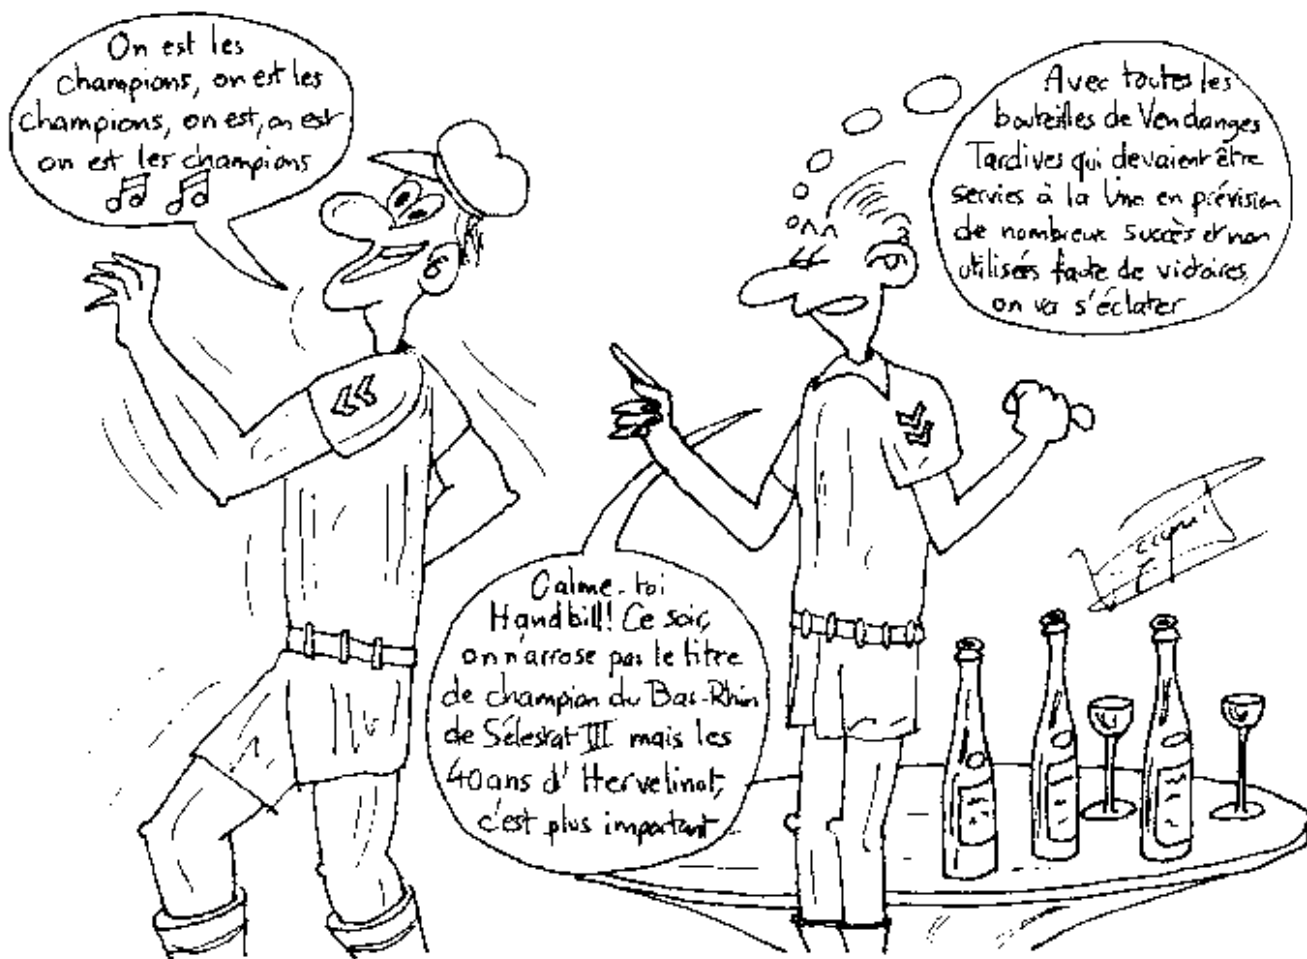 On est les
champions, on est les
champions, on est, on est
on est les champions
Avec toutes les
bouteilles de Vendanges
Tardives qui devaient être
servies à la Une en prévision
de nombreux succès et non
utilisées faute de victoires,
on va s'éclater
Calme-toi
Handbill! Ce soir,
on n'arrose pas le titre
de champion du Bas-Rhin
de Sélestat III mais les
40 ans d'Hervelinot,
c'est plus important